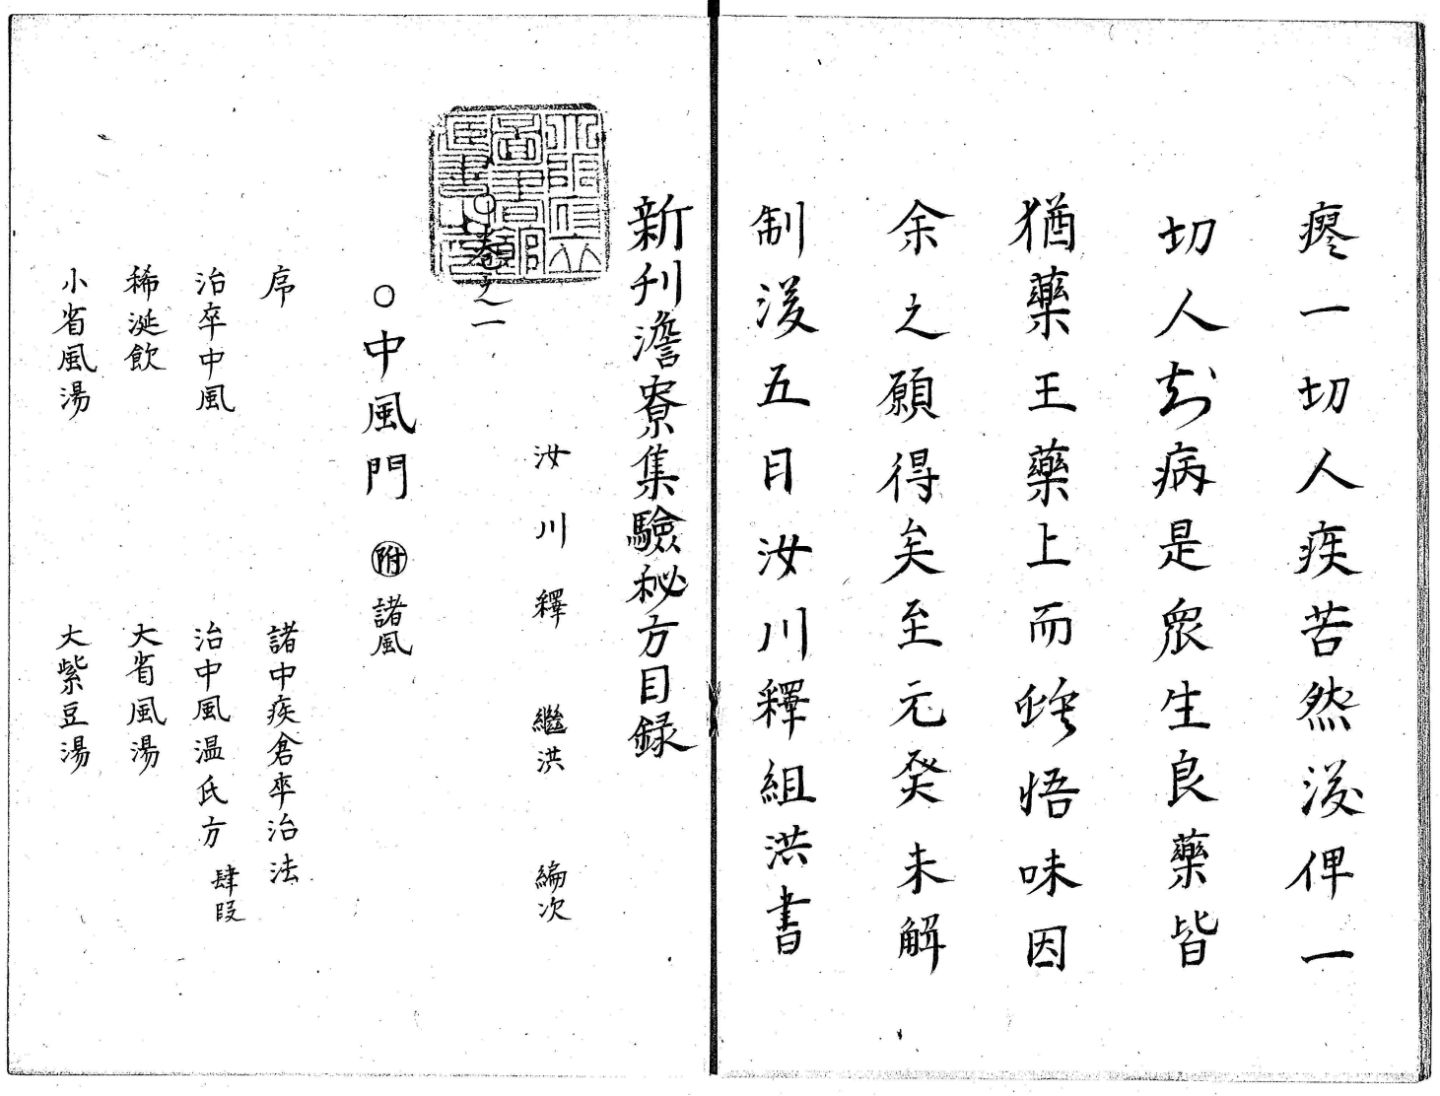 瘳一切人疾苦然後俾一
切人知病是衆生良藥皆
猶藥王藥上而能悟味因
余之願得矣至元癸未解
制後五日汝川釋組洪書
新刋澹寮集驗秘方目録
汝川釋 繼洪 編次
○卷之一
○中風門 附諸風
序 諸中疾倉卒治法
治卒中風 治中風温氏方 肆段
稀涎飲 大省風湯
小省風湯 大紫豆湯